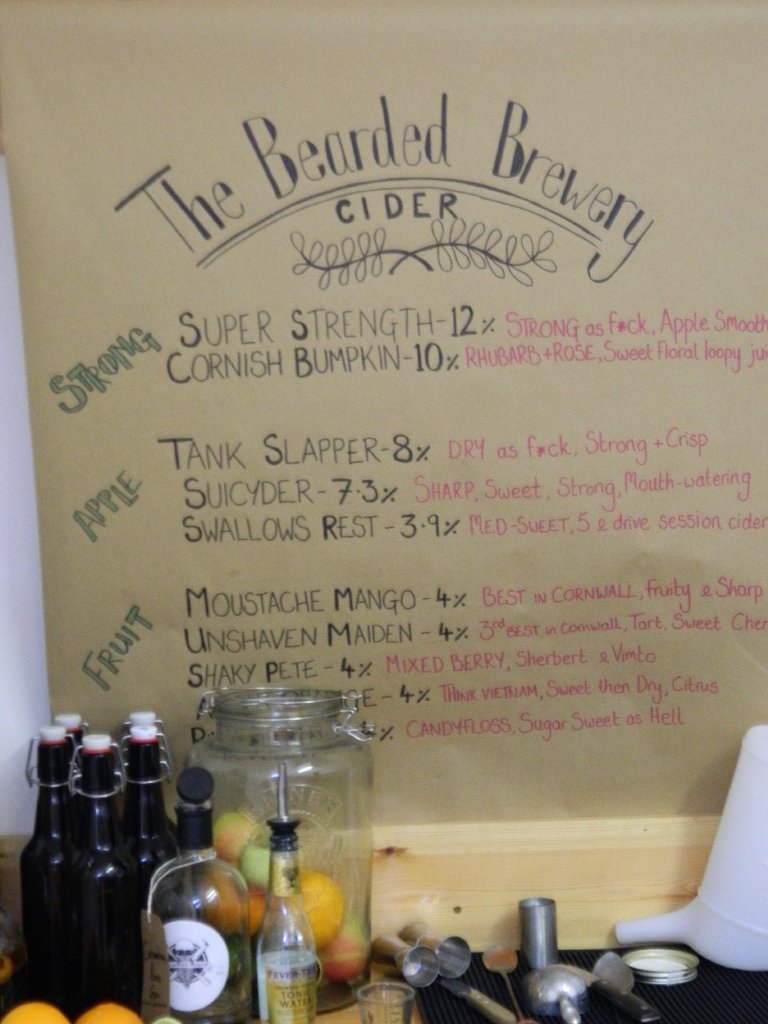 The Bearded Brewery
CIDER
STRONG
SUPER STRENGTH - 12% STRONG as f*ck, Apple Smooth
CORNISH BUMPKIN - 10% RHUBARB + ROSE, Sweet Floral loopy
APPLE
TANK SLAPPER - 8% DRY as f*ck, Strong + Crisp
SUICYDER - 7.3% SHARP, Sweet, Strong, Mouth-watering
SWALLOWS REST - 3.9% MED-SWEET, 5 & drive session cider
FRUIT
MOUSTACHE MANGO - 4% BEST IN CORNWALL, Fruity & Sharp
UNSHAVEN MAIDEN - 4% 3rd BEST in Cornwall, Tart, Sweet
SHAKY PETE - 4% MIXED BERRY, Sherbert & Vimto
- 4% THINK VIETNAM, Sweet then Dry, Citrus
% CANDYFLOSS, Sugar Sweet as Hell
FEVER-TREE
TONIC
WATER